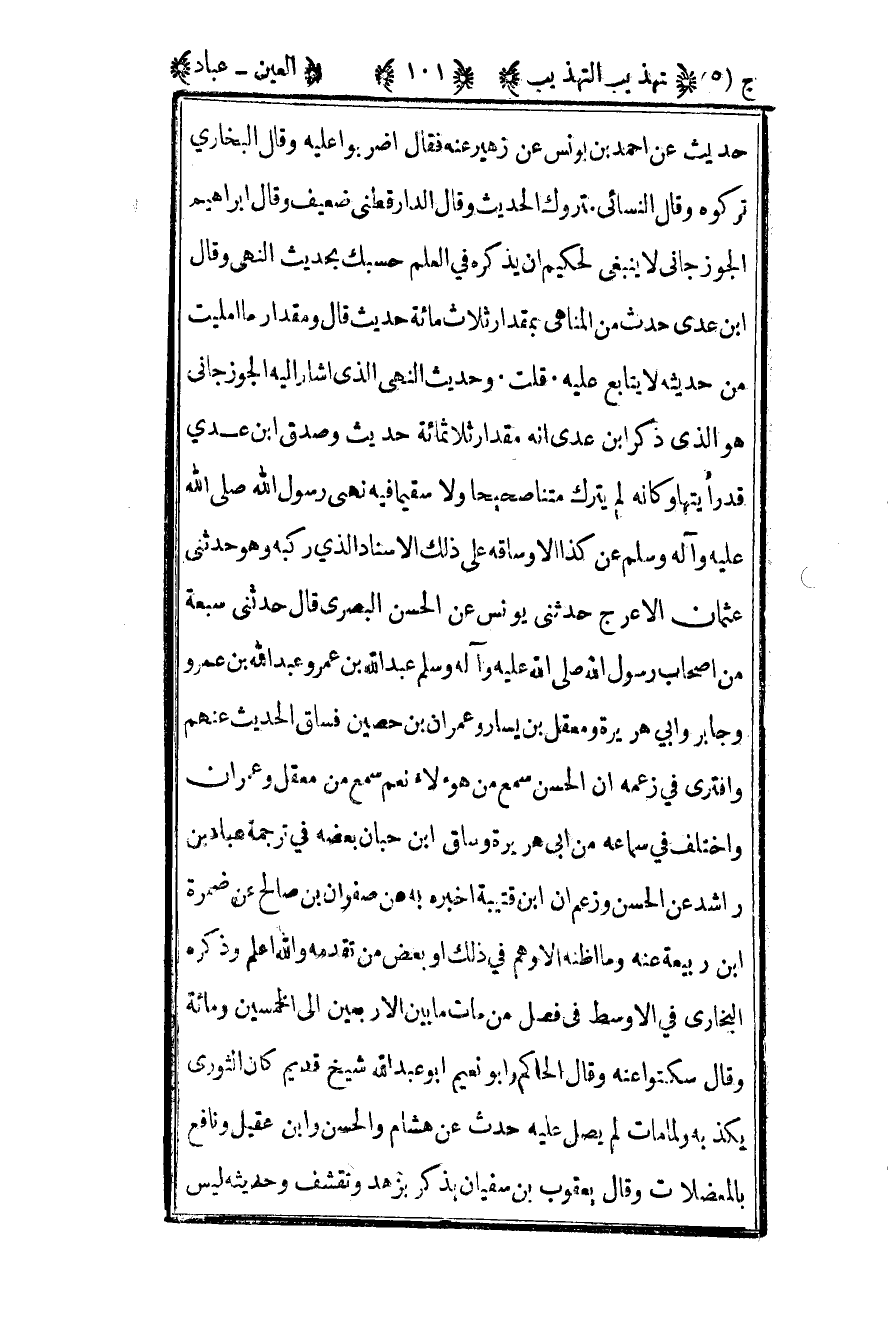 ج (٥) ﴿ تهذيب التهذيب ﴾ ﴿ ١٠١ ﴾ ﴿ العين - عباد ﴾
حديث عن احمد بن يونس عن زهير عنه فقال اضربوا عليه وقال البخاري
تركوه وقال النسائى متروك الحديث وقال الدارقطنى ضعيف وقال ابراهيم
الجوزجانى لا ينبغى لحكيم ان يذكره في العلم حسبك بحديث النهى وقال
ابن عدى حدث من المناهى بمقدار ثلاث مائة حديث قال ومقدار ما امليت
من حديثه لا يتابع عليه · قلت · وحديث النهى الذى اشار اليه الجوزجانى
هو الذى ذكر ابن عدى انه مقدار ثلاثمائة حديث وصدق ابن عدي
قد رأيتها وكانه لم يترك متنا صحيحا ولا سقيما فيه نهى رسول الله صلى الله
عليه وآله وسلم عن كذا الا وساقه على ذلك الاسناد الذي ركبه وهو حدثنى
عثمان الاعرج حدثنى يونس عن الحسن البصرى قال حدثنى سبعة
من اصحاب رسول الله صلى الله عليه وآله وسلم عبدالله بن عمر وعبدالله بن عمرو
وجابر وابي هريرة ومعقل بن يسار وعمران بن حصين فساق الحديث عنهم
وافترى في زعمه ان الحسن سمع من هوءلاء نعم سمع من معقل وعمران
واختلف في سماعه من ابى هريرة وساق ابن حبان بعضه في ترجمة عباد بن
راشد عن الحسن وزعم ان ابن قتيبة اخبره به عن صفوان بن صالح عن ضمرة
ابن ربيعة عنه وما اظنه الا وهم في ذلك او بعض من تقدمه والله اعلم وذكره
البخارى في الاوسط فى فصل من مات ما بين الاربعين الى الخمسين ومائة
وقال سكتوا عنه وقال الحاكم وابو نعيم ابو عبدالله شيخ قديم كان الثورى
يكذبه ولما مات لم يصل عليه حدث عن هشام والحسن وابن عقيل ونافع
بالمعضلات وقال يعقوب بن سفيان يذكر بزهد وتقشف وحديثه ليس